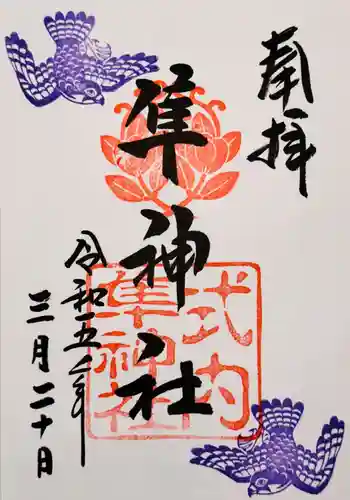 奉拝
隼神社
式内
隼神社
令和五年
三月二十日